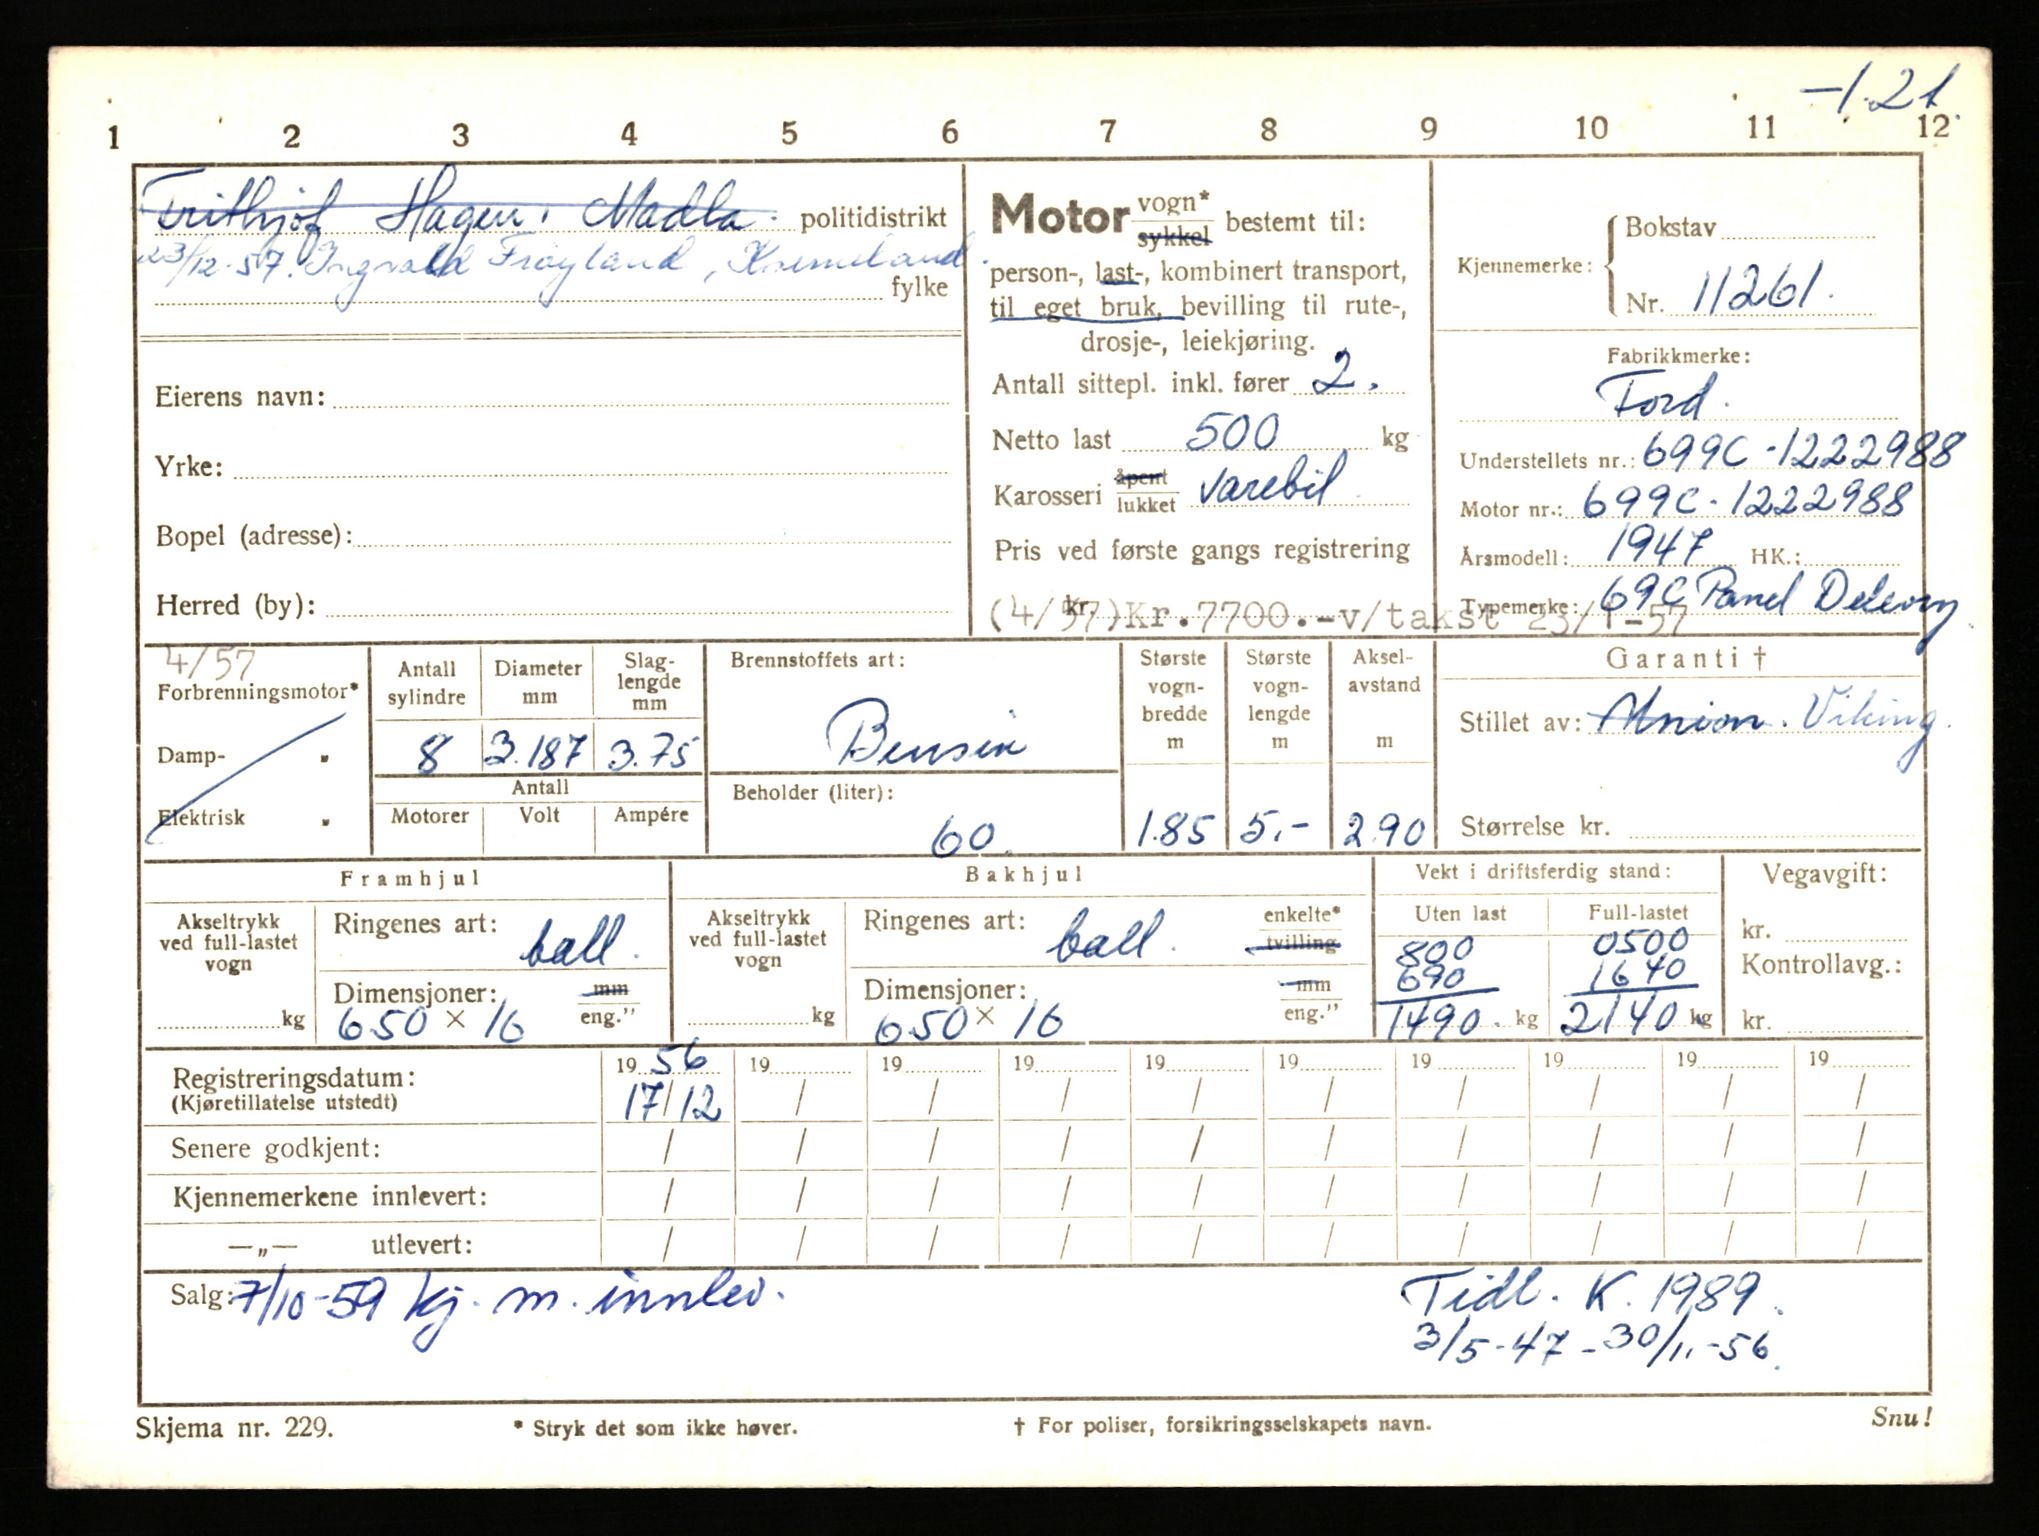 -1.21
1 2 3 4 5 6 7 8 9 10 11 12
Frithjof Hagen. Madla. politidistrikt
23/12-57. Ingvald Frøyland, Kverneland.
fylke
Eierens navn:
Yrke:
Bopel (adresse):
Herred (by):
Motor vogn* sykkel bestemt til:
person-, last-, kombinert transport,
til eget bruk, bevilling til rute-,
drosje-, leiekjøring.
Antall sittepl. inkl. fører 2.
Netto last 500 kg
Karosseri åpent lukket Varebil
Pris ved første gangs registrering
kr.
(4/57)Kr.7700.-v/takst 23/1-57
Kjennemerke: Bokstav
Nr. 11261.
Fabrikkmerke:
Ford.
Understellets nr.: 699C-1222988
Motor nr.: 699C-1222988
Årsmodell: 1947 HK.:
Typemerke: 69C Panel Delevry
4/57
Forbrenningsmotor*
Damp- "
Elektrisk "
Antall sylindre
Diameter mm
Slaglengde mm
8 3.187 3.75
Antall
Motorer Volt Ampére
Brennstoffets art:
Bensin
Beholder (liter):
60.
Største vognbredde m
1.85
Største vognlengde m
5.-
Akselavstand m
2.90
Garanti †
Stillet av: Union. Viking.
Størrelse kr.
Framhjul
Akseltrykk ved full-lastet vogn
kg
Ringenes art: ball.
Dimensjoner: mm
650 x 16 eng."
Bakhjul
Akseltrykk ved full-lastet vogn
kg
Ringenes art: ball. enkelte* tvilling
Dimensjoner: mm
650 x 16 eng."
Vekt i driftsferdig stand:
Uten last Full-lastet
800 0500
690 1640
1490. kg 2140 kg
Vegavgift:
kr.
Kontrollavg.:
kr.
Registreringsdatum: 19 56 19 19 19 19 19 19 19 19 19
(Kjøretillatelse utstedt) 17/12 / / / / / / / / /
Senere godkjent: / / / / / / / / / /
Kjennemerkene innlevert: / / / / / / / / / /
—„— utlevert: / / / / / / / / / /
Salg: 7/10-59 kj. m. innlev.
Tidl. K. 1989.
3/5-47 - 30/11-56.
Skjema nr. 229.
* Stryk det som ikke høver.
† For poliser, forsikringsselskapets navn.
Snu!